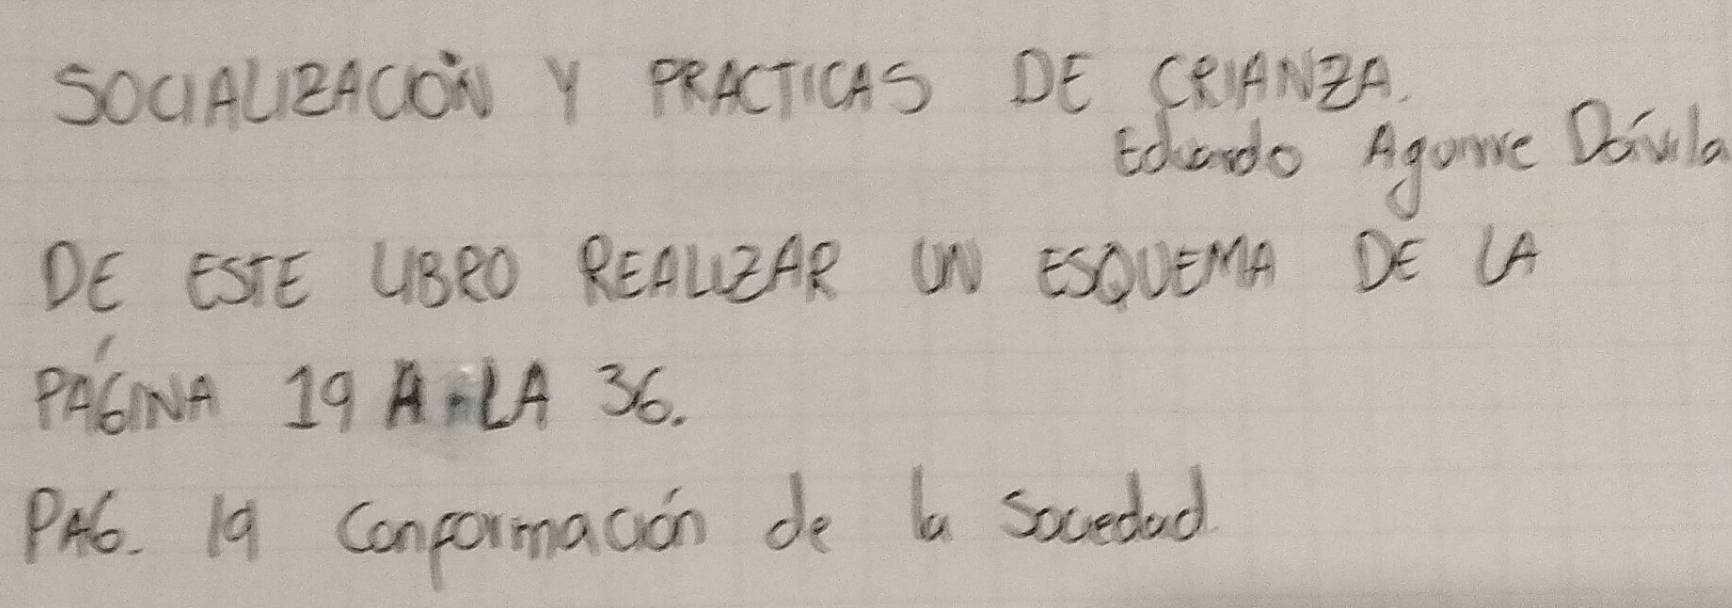 SOCIALIZACIÓN Y PRACTICAS DE CRIANZA.
Eduardo Aguirre Dávila
DE ESTE LIBRO REALIZAR UN ESQUEMA DE LA
PÁGINA 19 A LA 36.
PAG. 19 Conformación de la Sociedad